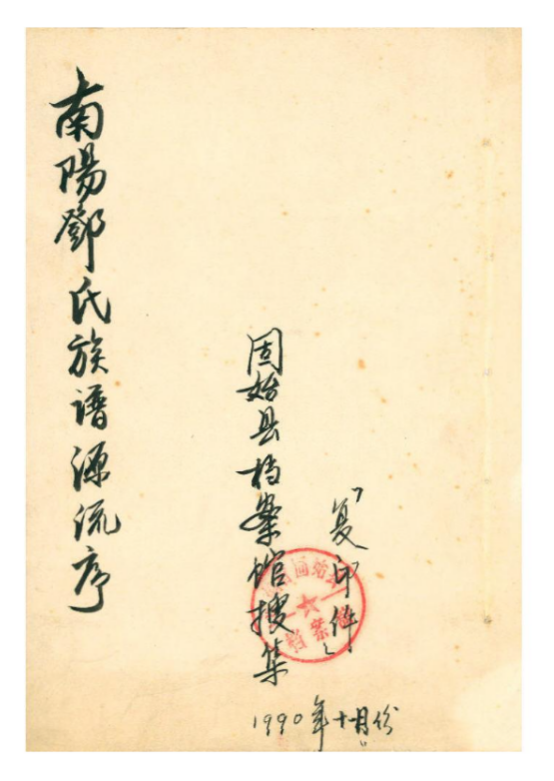 南陽鄧氏族谱源流序
固始县档案馆搜集
「复印件」
1990年十月份